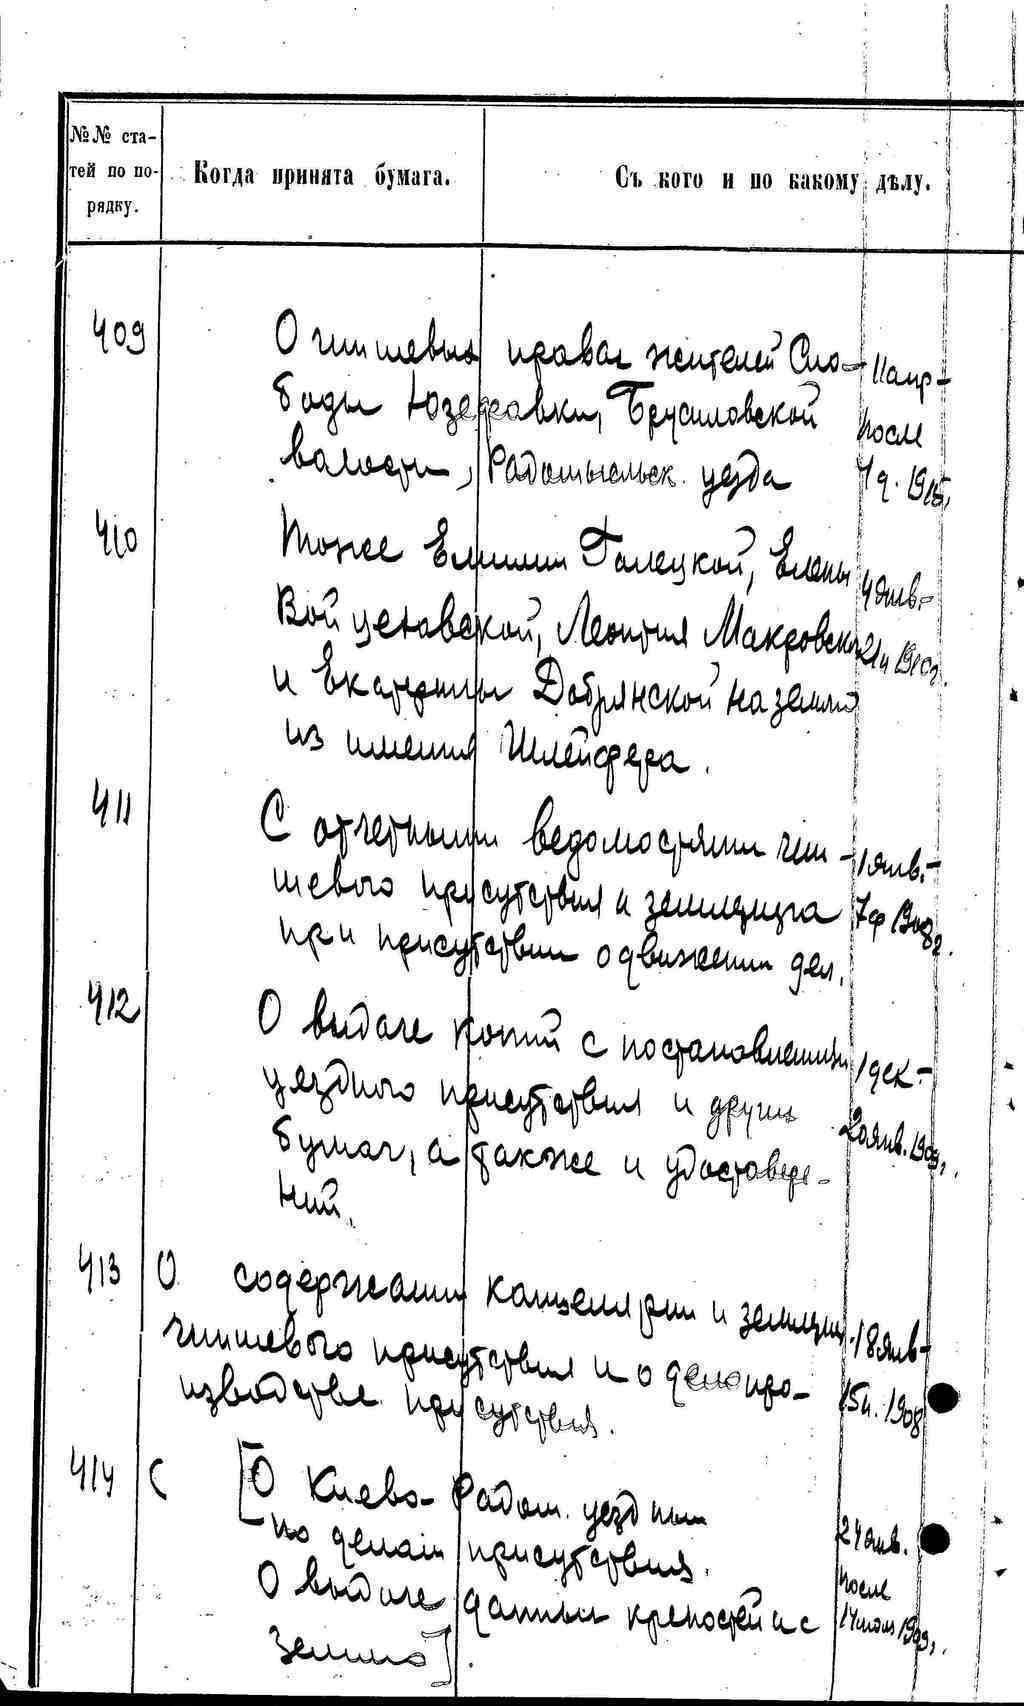 №№ ста-
тей по по-
рядку.
Когда принята бумага.
Съ кого и по какому дѣлу.
409
О чиншевых правах жителей Сло-
боды Юзефовки, Брусиловской
волости, Радомысльск. уезда
11 апр-
после
1915
410
Тоже Емилии Галецкой, Елены
Войцеховской, Леонтия Макровск
и Екатерины Добрянской на земли
из имения Шлейфера.
4 янв.-
1910г.
411
С отчетными ведомостями чин-
шевого присутствия и землемера
при присутствии о движении дел.
1 янв.-
7 ф 1908г.
412
О выдаче копий с постановлений
уездного присутствия и других
бумаг, а также и удостовере-
ний.
1 дек.-
20 янв. 1909г.
413
О содержании канцелярии и землемера
чиншевого присутствия и о делопро-
изводстве присутствия.
18 янв-
15 н. 1908
414
С [О Киево-Радом. уездным
по делам присутствия.
О выдаче данных крепостей и с
землею]
24 янв.
после
14 июля 1909г.